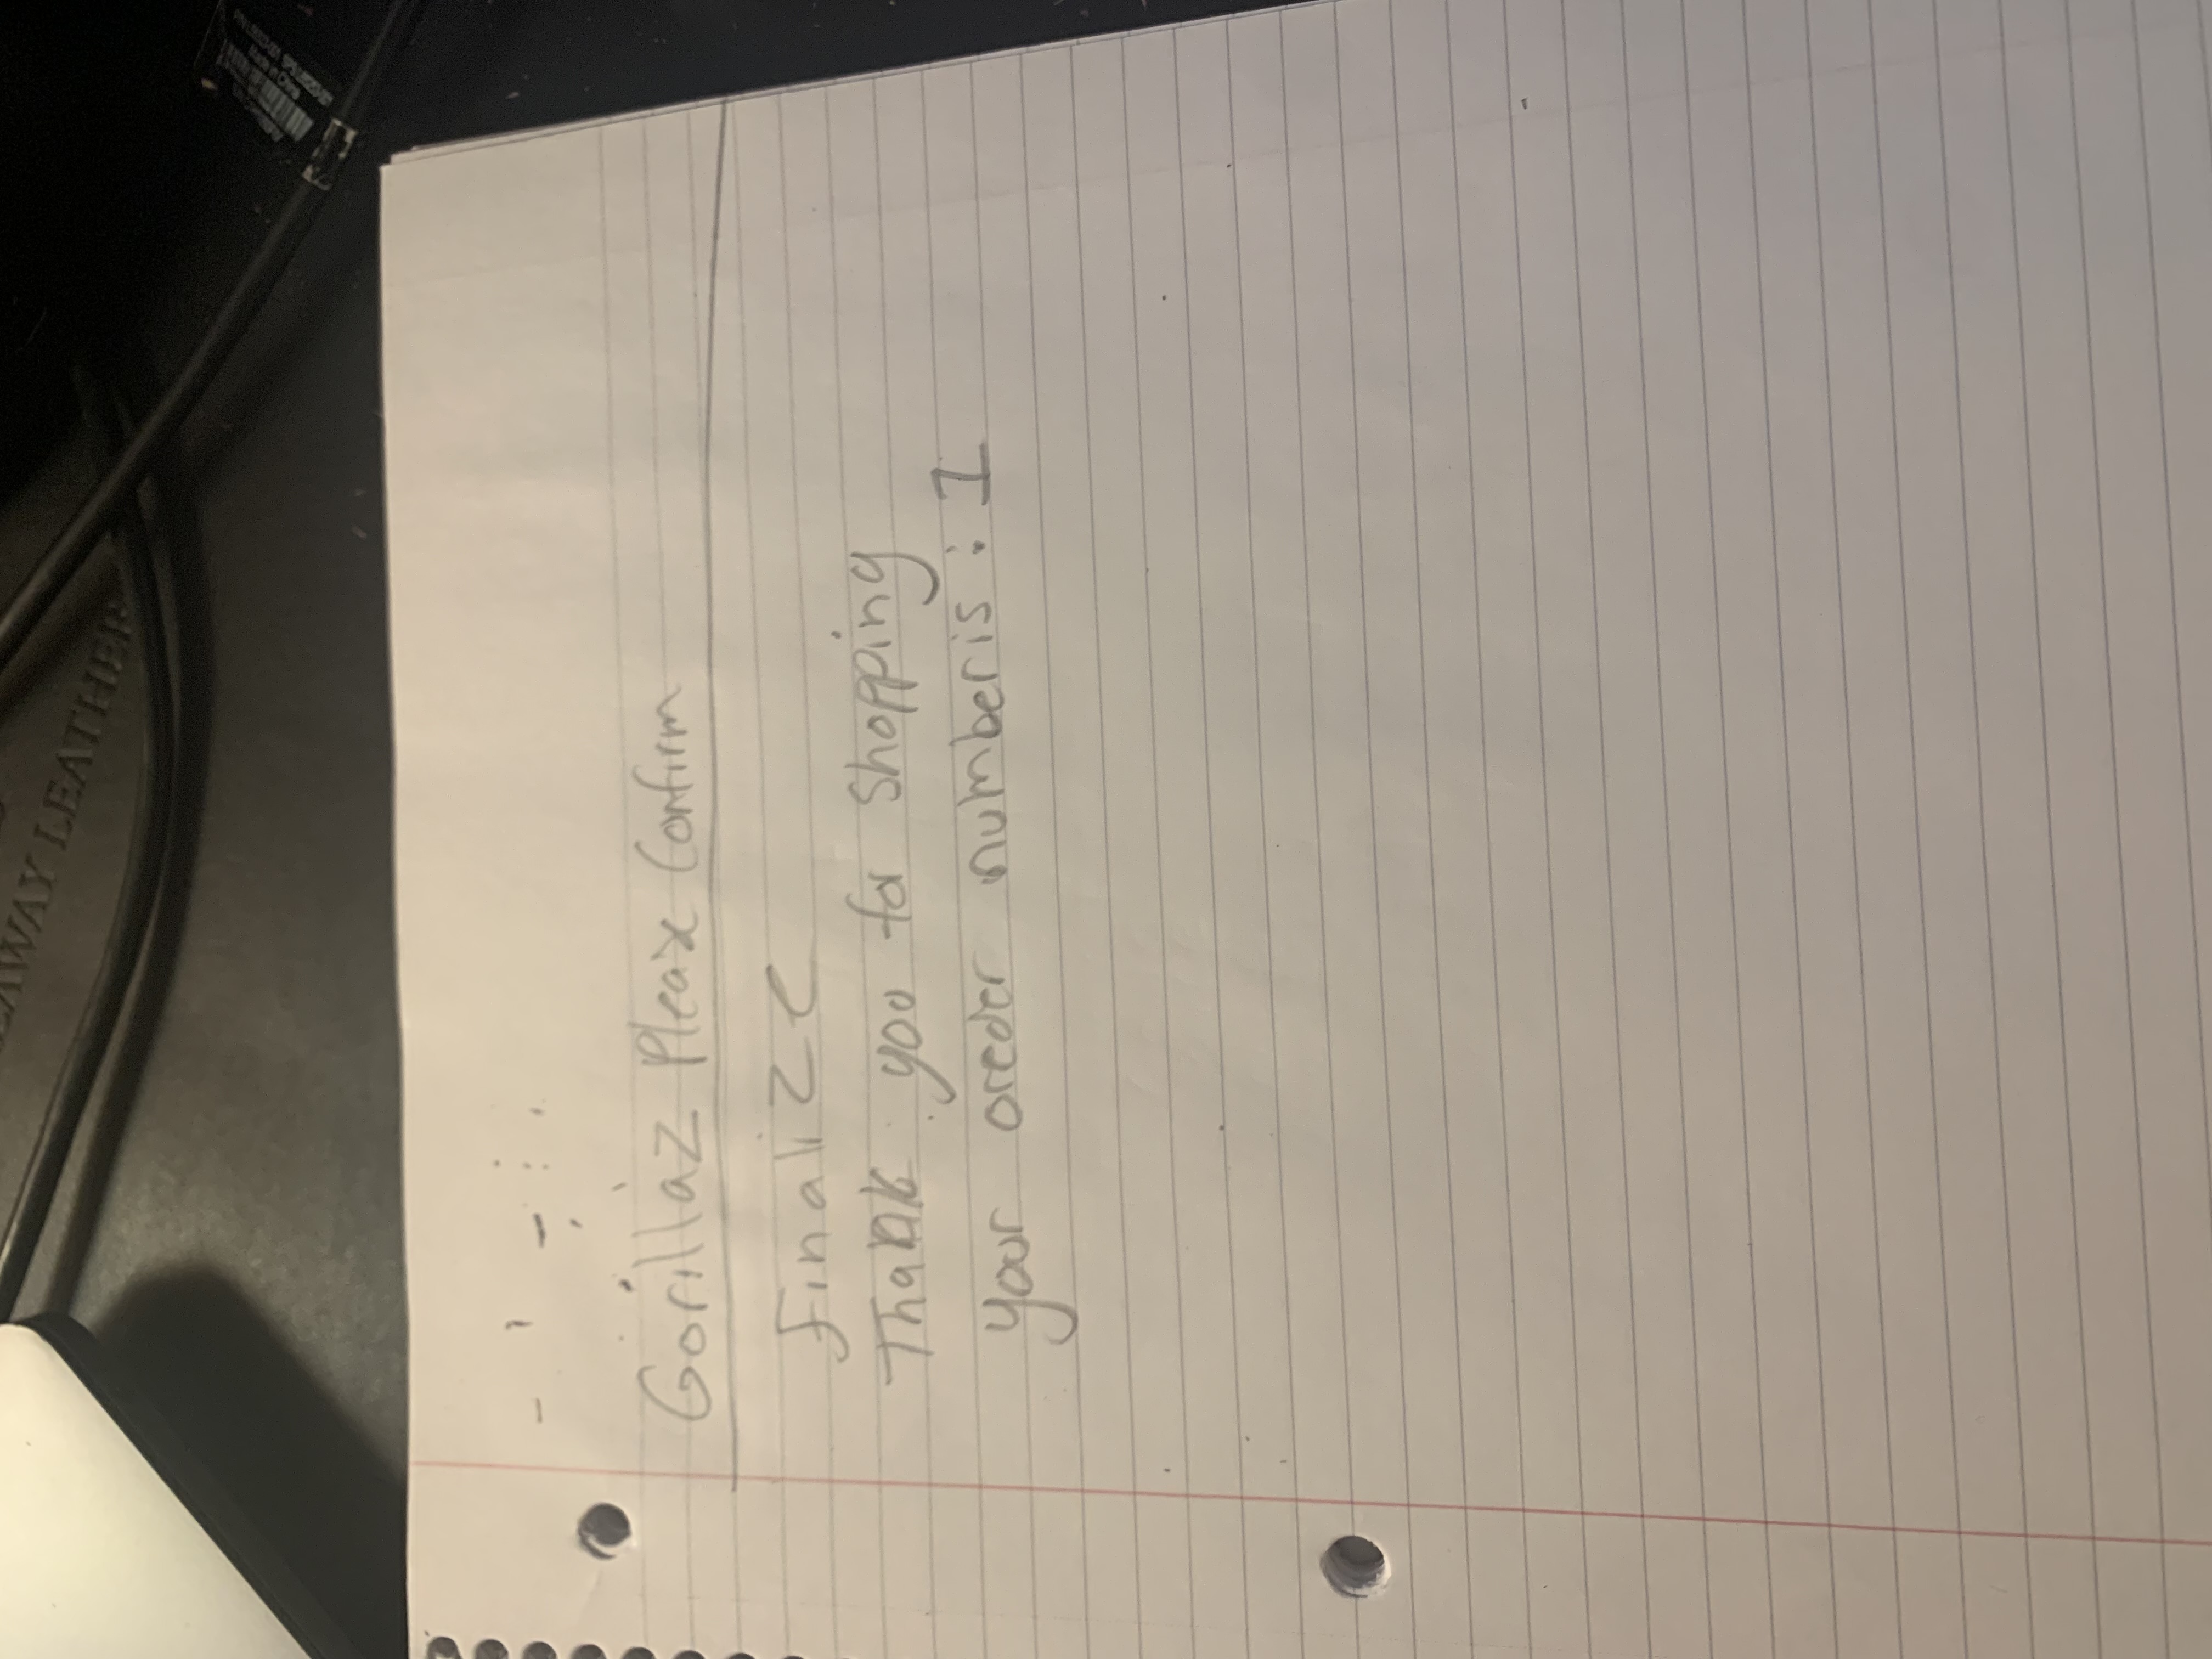 AWAY LEATHER
Gorillaz Please Confirm
finalize
Thank you for shopping
your oreder number is : 1